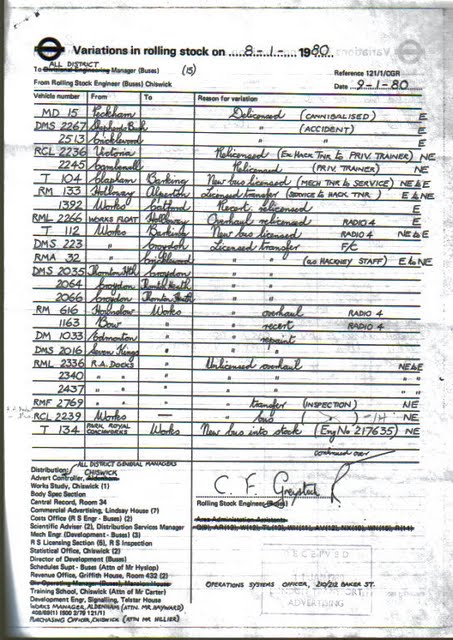 Variations in rolling stock on 8-1-1980
ALL DISTRICT
To Divisional Engineering Manager (Buses) (15)
Reference 121/1/CGR
From Rolling Stock Engineer (Buses) Chiswick
Date 9-1-80
Vehicle number From To Reason for variation
MD 15 Peckham Delicensed (CANNIBALISED) E
DMS 2267 Shepherds Bush " (ACCIDENT) E
2513 Cricklewood " " E
RCL 2236 Victoria Relicensed (EX HACK TNR TO PRIV. TRAINER) NE
2245 Camberwell Relicensed (PRIV. TRAINER) NE
T 104 Clapham Barking New bus licensed (MECH TNR TO SERVICE) NE&E
RM 133 Holloway Licensed transfer (SERVICE TO HACK TNR) E
1392 Works Catford Recert relicensed E
RML 2266 WORKS FLOAT Holloway Overhaul relicensed RADIO 4 E
T 112 Works Barking New bus licensed RADIO 4 NE&E
DMS 223 " Croydon Licensed transfer F/C E
RMA 32 " Cricklewood " " (HACKNEY STAFF) E&NE
DMS 2035 Thornton Hth Croydon " "
2064 Croydon Thornton Heath " "
2066 Croydon Thornton Heath " "
RM 616 Hounslow Works " overhaul RADIO 4
1163 Bow " " recert RADIO 4
DM 1033 Edmonton " " repaint
DMS 2016 Seven Kings " " "
RML 2336 R.A. DOCKS Unlicensed overhaul NE&E
2340 " " " " " "
2437 " " " " " "
RMF 2769 " " " transfer (INSPECTION) NE
RCL 2239 Works — " bus ( " ) -14 NE
T 134 PARK ROYAL COACHWORKS Works New bus into stock (Eng No 217635) NE
continued over
Distribution: ALL DISTRICT GENERAL MANAGERS
CHISWICK
Advert Controller, Aldenham
Works Study, Chiswick (1)
Body Spec Section
Central Record, Room 34
Commercial Advertising, Lindsay House (7)
Costs Office (R S Engr - Buses) (2)
Scientific Adviser (2), Distribution Services Manager
Mech Engr (Development - Buses) (3)
R S Licensing Section (5), R S Inspection
Statistical Office, Chiswick (2)
Director of Development (Buses)
Schedules Supt - Buses (Attn of Mr Hyslop)
Revenue Office, Griffith House, Room 432 (2)
Div Operating Manager (Buses), Mansion House
Training School, Chiswick (Attn of Mr Carter)
Development Engr, Signalling, Telstar House
WORKS MANAGER, ALDENHAM (ATTN. MR. HAYWARD)
PURCHASING OFFICER, CHISWICK (ATTN MR HILLIER)
C F Greysted
Rolling Stock Engineer (Buses)
Area Administration Assistants
OPERATIONS SYSTEMS OFFICER, 210/212 BAKER ST.
RECEIVED
ADVERTISING